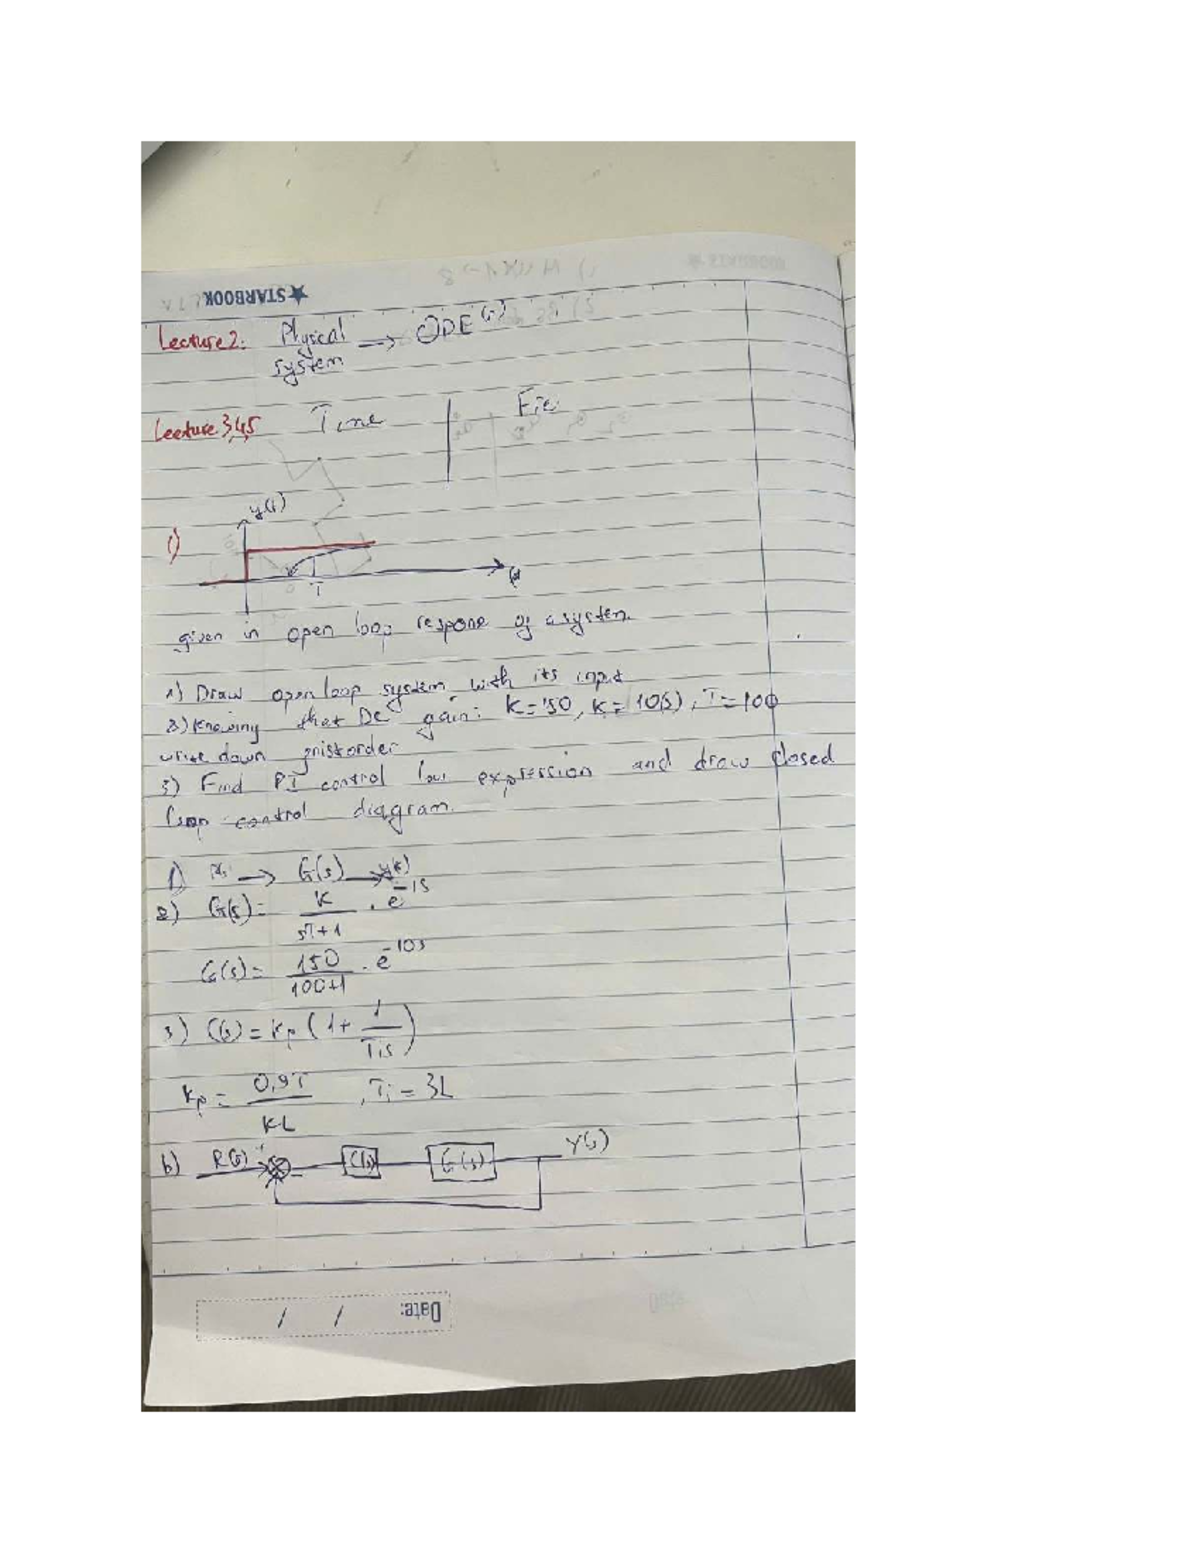 ★ STARBOOK
Lecture 2: Physical → ODE(s)
system
Lecture 3,4,5 Time
y(t)
1)
T
given in open loop respone of a system.
1) Draw open loop system with its input
2) Knowing that DC gain: K = 50, K = 10(s), T = 100
write down
3) Find PI control law expression and draw closed
loop control diagram.
1) → G(s) → y(t)
2) G(s) = K / sT+1 . e^-1s
G(s) = 150 / 100+1 . e^-10s
3) C(s) = Kp (1 + 1 / Tis)
Kp = 0,9T / KL , Ti = 3L
b) R(s) + - C(s) G(s) Y(s)
Date: / /